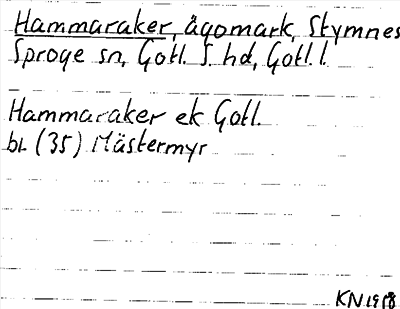 Hammaraker, ägomark, Stymnes
Sproge sn, Gotl. S. hd, Gotl. l.
Hammaraker ek Gotl.
bl. (35) Mästermyr
KN